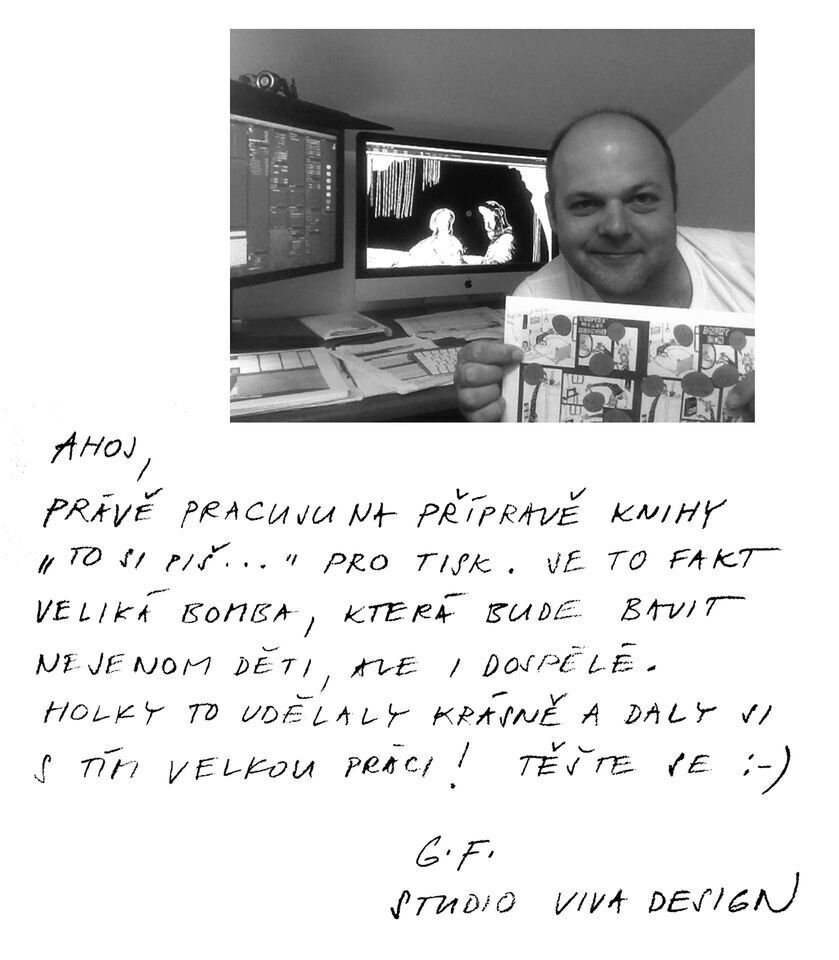 DRUHÝ
DEN
AHOJ,
PRÁVĚ PRACUJU NA PŘÍPRAVĚ KNIHY
„TO SI PIŠ..." PRO TISK. JE TO FAKT
VELIKÁ BOMBA, KTERÁ BUDE BAVIT
NEJENOM DĚTI, ALE I DOSPĚLÉ.
HOLKY TO UDĚLALY KRÁSNĚ A DALY SI
S TÍM VELKOU PRÁCI! TĚŠTE SE :-)
G.F.
STUDIO VIVA DESIGN